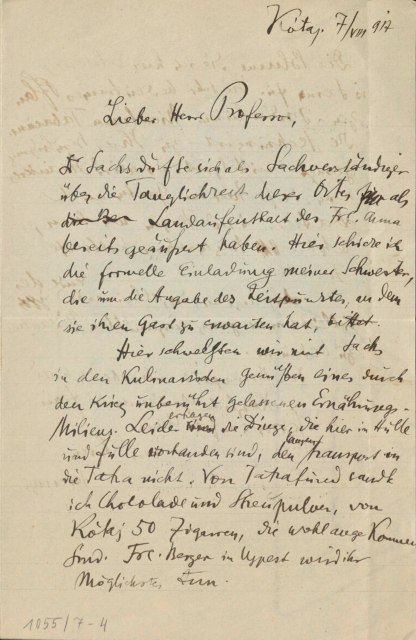 Kótaj 7/VIII 917
Lieber Herr Professor,
Dr Sachs dürfte sich als Sachverständiger
über die Tauglichkeit dieses Ortes für als
Landaufenthalt des Frl. Anna
bereits geäußert haben. Hier schicke ich
die formelle Einladung meiner Schwester,
die um die Angabe des Zeitpunktes, an dem
sie ihren Gast zu erwarten hat, bittet.
Hier schwelgten wir mit Sachs
in den kulinarischen Genüßen eines durch
den Krieg unberührt gelassenen Ernährungs-
Milieus. Leider ertragen die Dinge, die hier in Hülle
und Fülle vorhanden sind, den langen Transport in
die Tatra nicht. Von Tatrafüred sandte
ich Chokolade und Streupulver, von
Kótaj 50 Zigarren, die wohl angekommen
sind. Frl. Berger in Ujpest wird ihr
Möglichstes tun.
1055/7-4